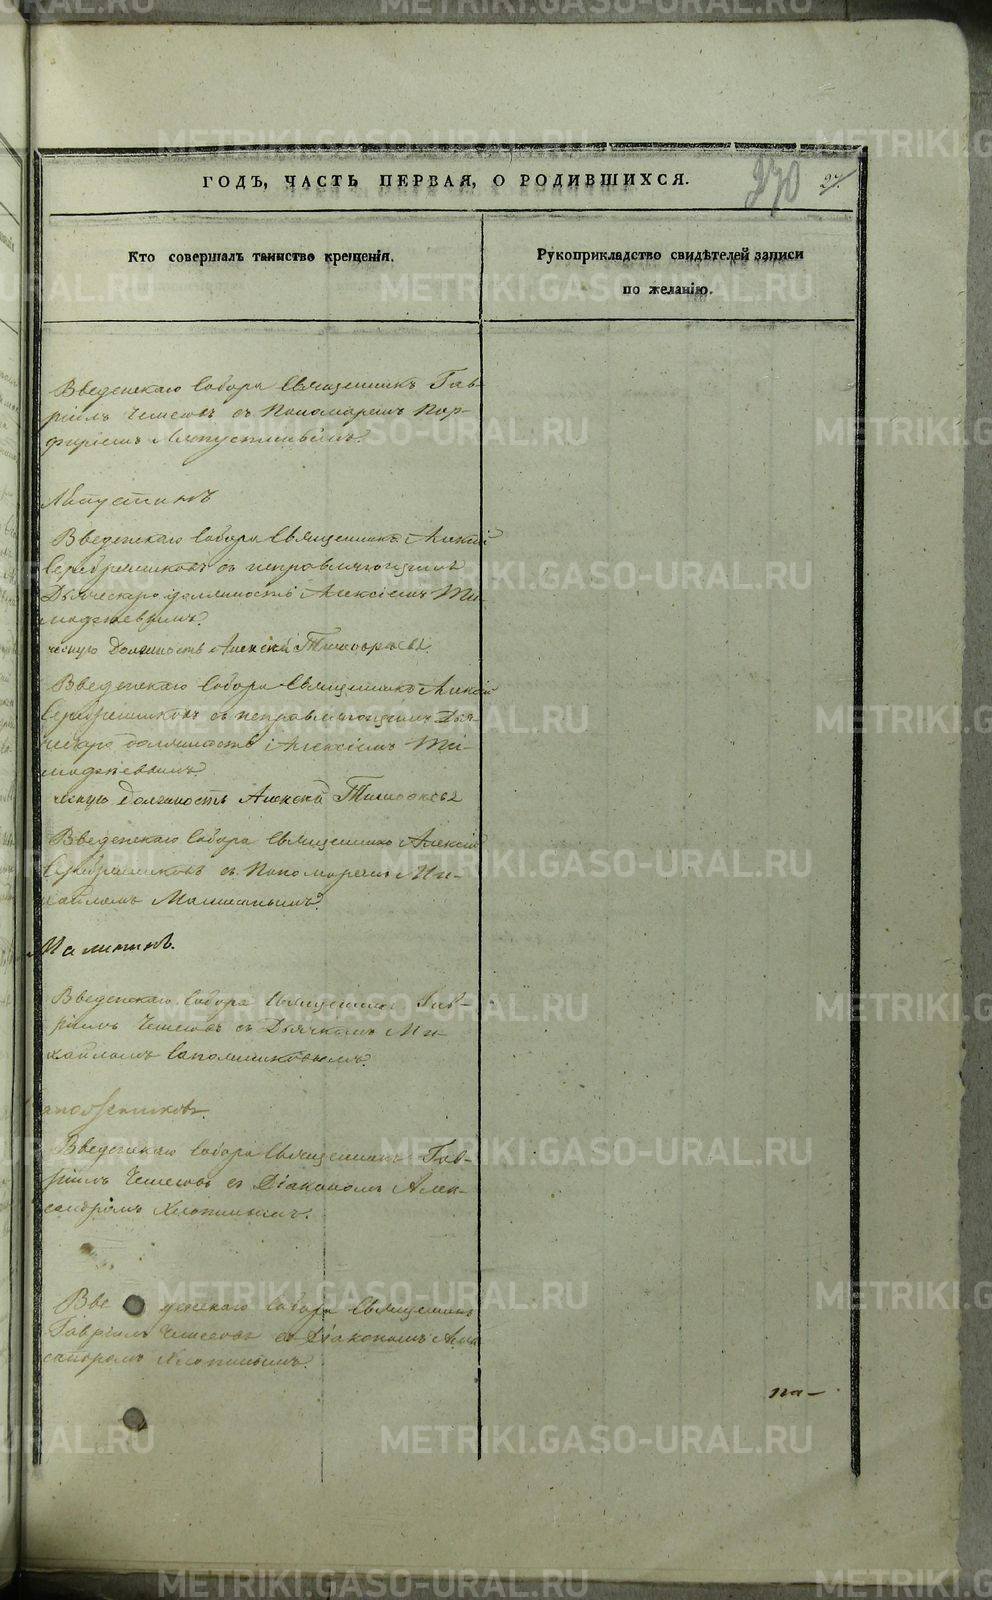 ГОДЪ, ЧАСТЬ ПЕРВАЯ, О РОДИВШИХСЯ.
270 27.
Кто совершалъ таинство крещенія.
Рукоприкладство свидѣтелей записи
по желанію.
Введенскаго Собора Священникъ Гав-
ріилъ съ Пономаремъ Пор-
фиріемъ
Введенскаго Собора Священникъ Алексій
Серебренниковъ съ исправляющимъ
Дьяческую должность Алексіемъ Ти-
моѳѣевымъ.
ческую должность Алексѣй Тимоѳеевъ
Введенскаго Собора Священникъ Алексій
Серебренниковъ съ исправляющимъ Дья-
ческую должность Алексіемъ Ти-
моѳѣевымъ
ческую должность Алексѣй Тимоѳеевъ
Введенскаго Собора Священникъ Алексій
Серебренниковъ съ Пономаремъ Ми-
хаиломъ
Введенскаго Собора Священникъ Гав-
ріилъ съ Дьячкомъ Ми-
хаиломъ Сапожниковымъ.
Введенскаго Собора Священникъ Гав-
ріилъ съ Діакономъ Алек-
сандромъ Хлопинымъ.
Введенскаго Собора Священникъ
Гавріилъ съ Діакономъ Алек
сандромъ Хлопинымъ.
на-
METRIKI.GASO-URAL.RU